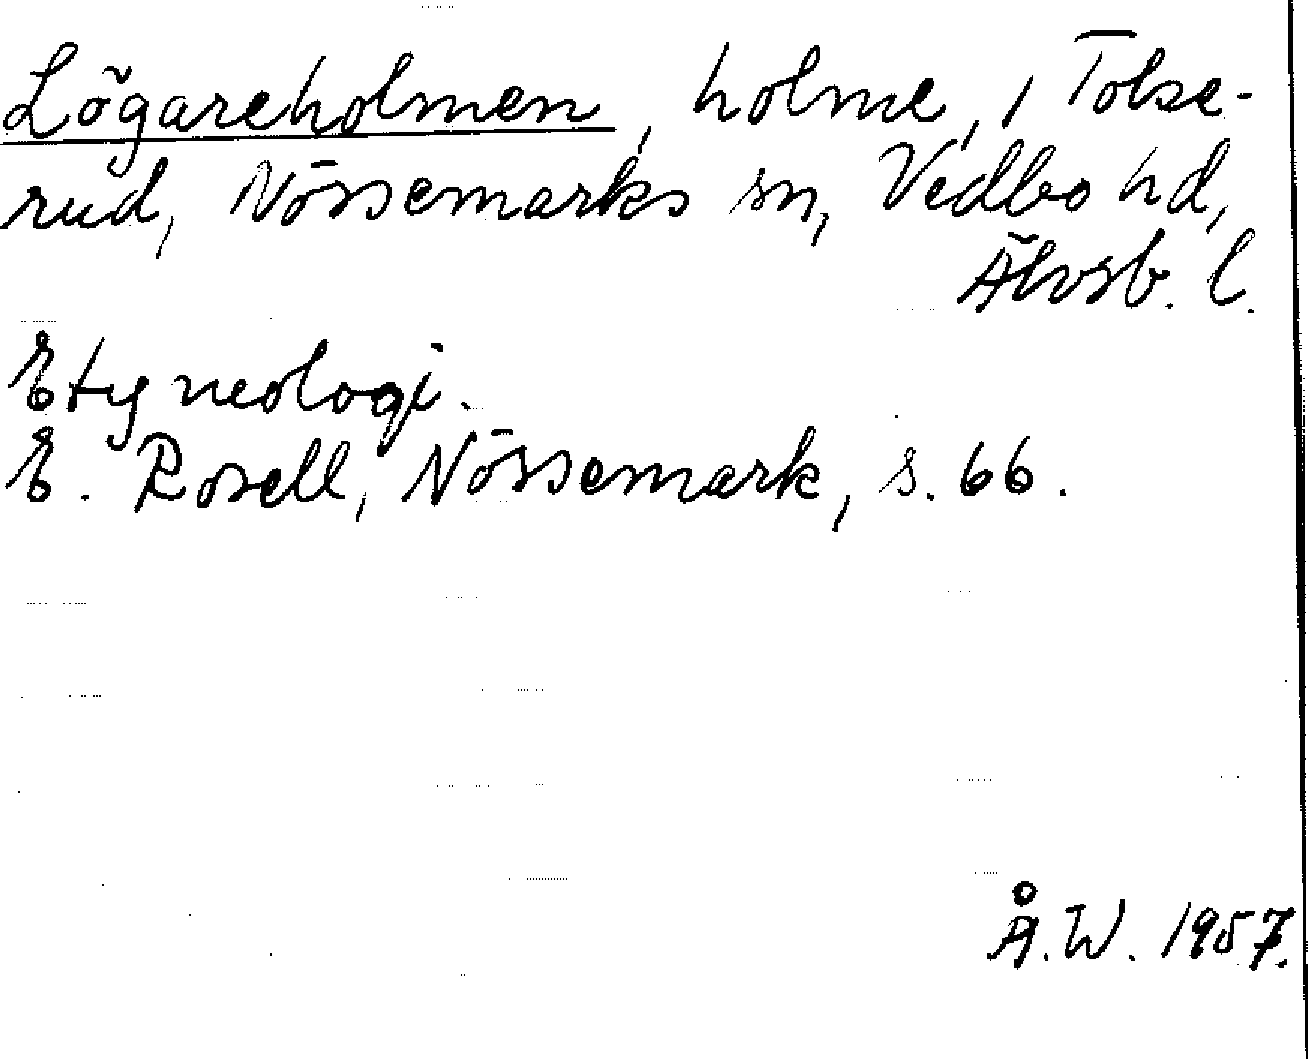 Lögareholmen, holme, i Tolse-
rud, Nössemarks sn, Vedbo hd,
Älvsb. l.
Etymologi.
E. Rosell, Nössemark, s. 66.
Å.W. 1957.